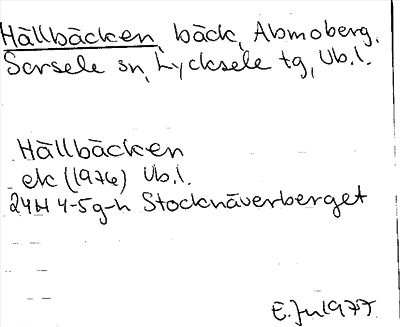 Hällbäcken, bäck, Abmoberg,
Sorsele sn, Lycksele tg, Vb.l.
Hällbäcken
ek (1976) Vb.l.
24H 4-5g-h Stocknäverberget
E. Ju 1977